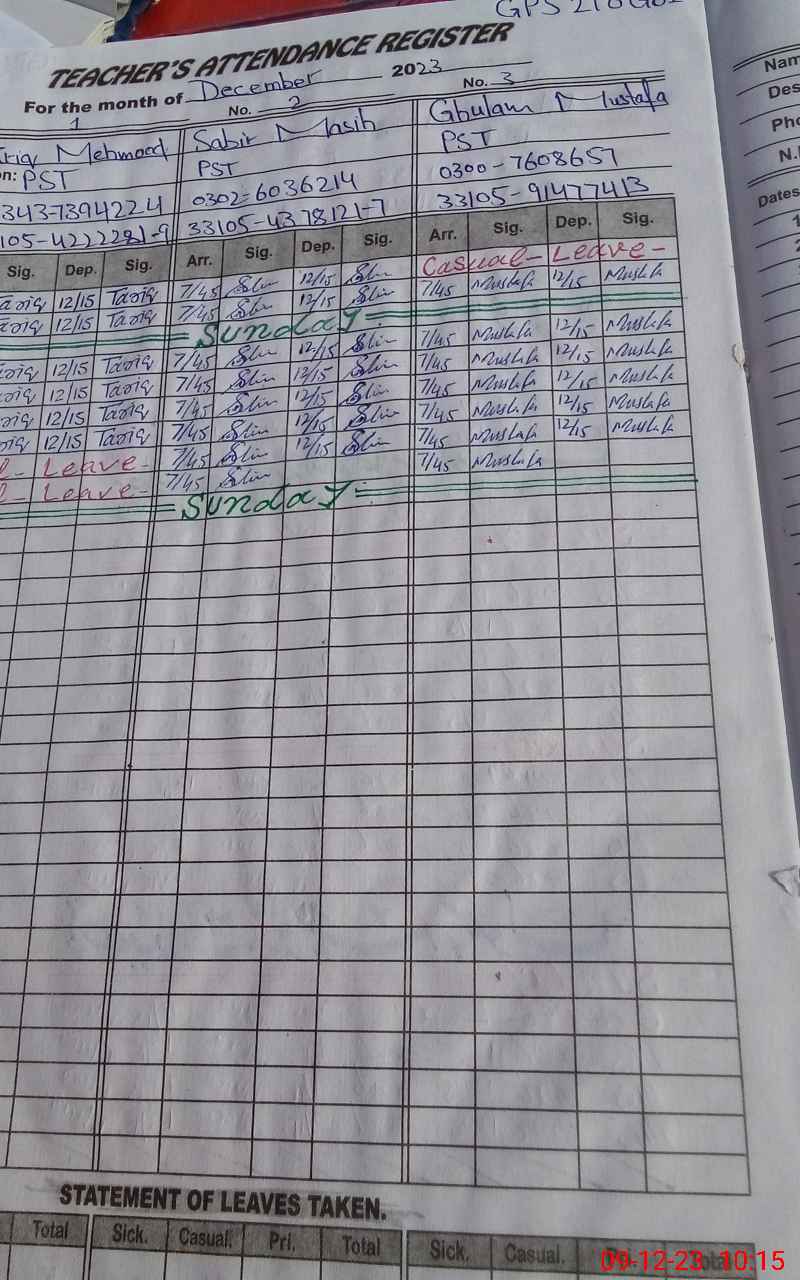 TEACHER'S ATTENDANCE REGISTER
For the month of December 2023
1 No. 2 No. 3
Mehmood Sabir Masih Ghulam Mustafa
on: PST PST PST
343-7394224 0302-6036214 0300-7608657
105-4222281-9 33105-4378121-7 33105-91477413
Sig. Dep. Sig. Arr. Sig. Dep. Sig. Arr. Sig. Dep. Sig.
12/15 Tariq 7/45 12/15 Casual- Leave-
12/15 Tariq 7/45 12/15 7/45 Mustafa 12/15 Mustafa
Sunday
12/15 Tariq 7/45 12/15 7/45 Mustafa 12/15 Mustafa
12/15 Tariq 7/45 12/15 7/45 Mustafa 12/15 Mustafa
12/15 Tariq 7/45 12/15 7/45 Mustafa 12/15 Mustafa
12/15 Tariq 7/45 12/15 7/45 Mustafa 12/15 Mustafa
Leave- 7/45 12/15 7/45 Mustafa 12/15 Mustafa
Leave- 7/45 7/45 Mustafa
Sunday
STATEMENT OF LEAVES TAKEN.
Total Sick. Casual. Pri. Total Sick. Casual.
09-12-23 10:15
Nam
Des
Pho
N.I
Dates